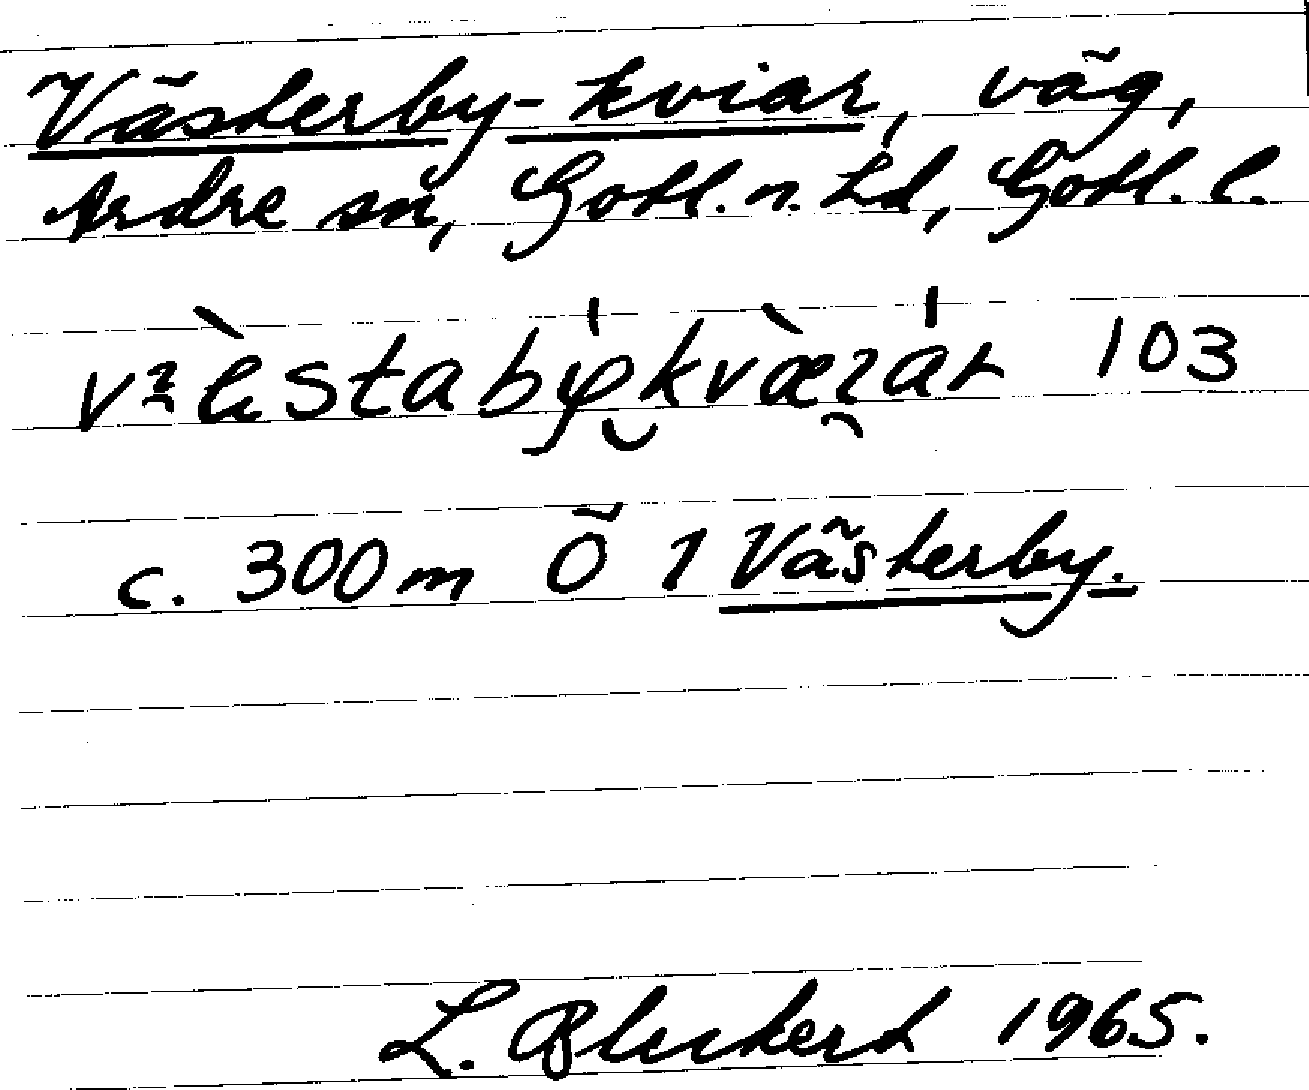 Västerby-kviar, väg,
Ardre sn, Gotl. n. Ld, Gotl. l.
103
c. 300 m Ö 1 Västerby.
L. 1965.